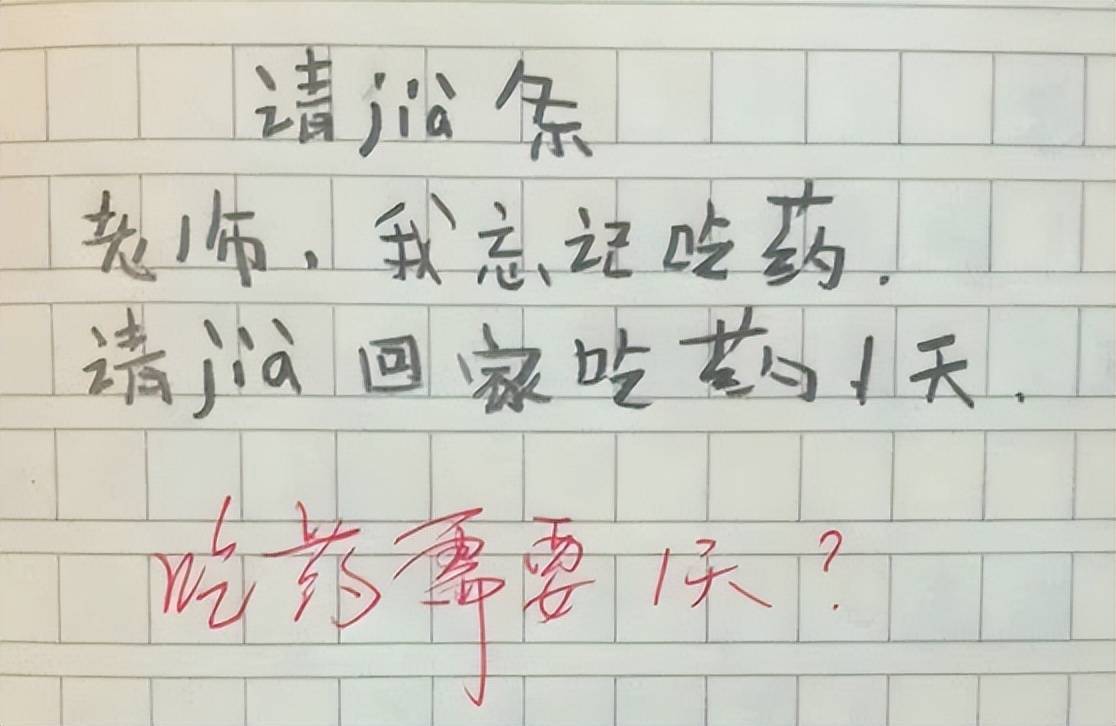 请jià条
老师，我忘记吃药.
请jià回家吃药1天.
吃药需要1天?